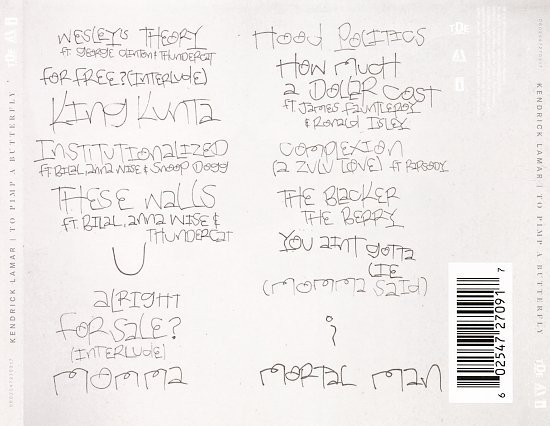 WESLEY'S THEORY
ft. GEORGE CLINTON & THUNDERCAT
FOR FREE? (INTERLUDE)
KING KUNTA
INSTITUTIONALIZED
ft. BILAL, ANNA WISE & SNOOP DOGG
THESE WALLS
ft. BILAL, ANNA WISE &
THUNDERCAT
U
ALRIGHT
FOR SALE?
(INTERLUDE)
MOMMA
HOOD POLITICS
HOW MUCH
A DOLLAR COST
ft. JAMES FAUNTLEROY
& RONALD ISLEY
COMPLEXION
(A ZULU LOVE) ft. RAPSODY
THE BLACKER
THE BERRY
YOU AINT GOTTA
LIE
(MOMMA SAID)
i
MORTAL MAN
6 02547 27091 7
KENDRICK LAMAR | TO PIMP A BUTTERFLY
KENDRICK LAMAR | TO PIMP A BUTTERFLY
TDE
TDE
TDE